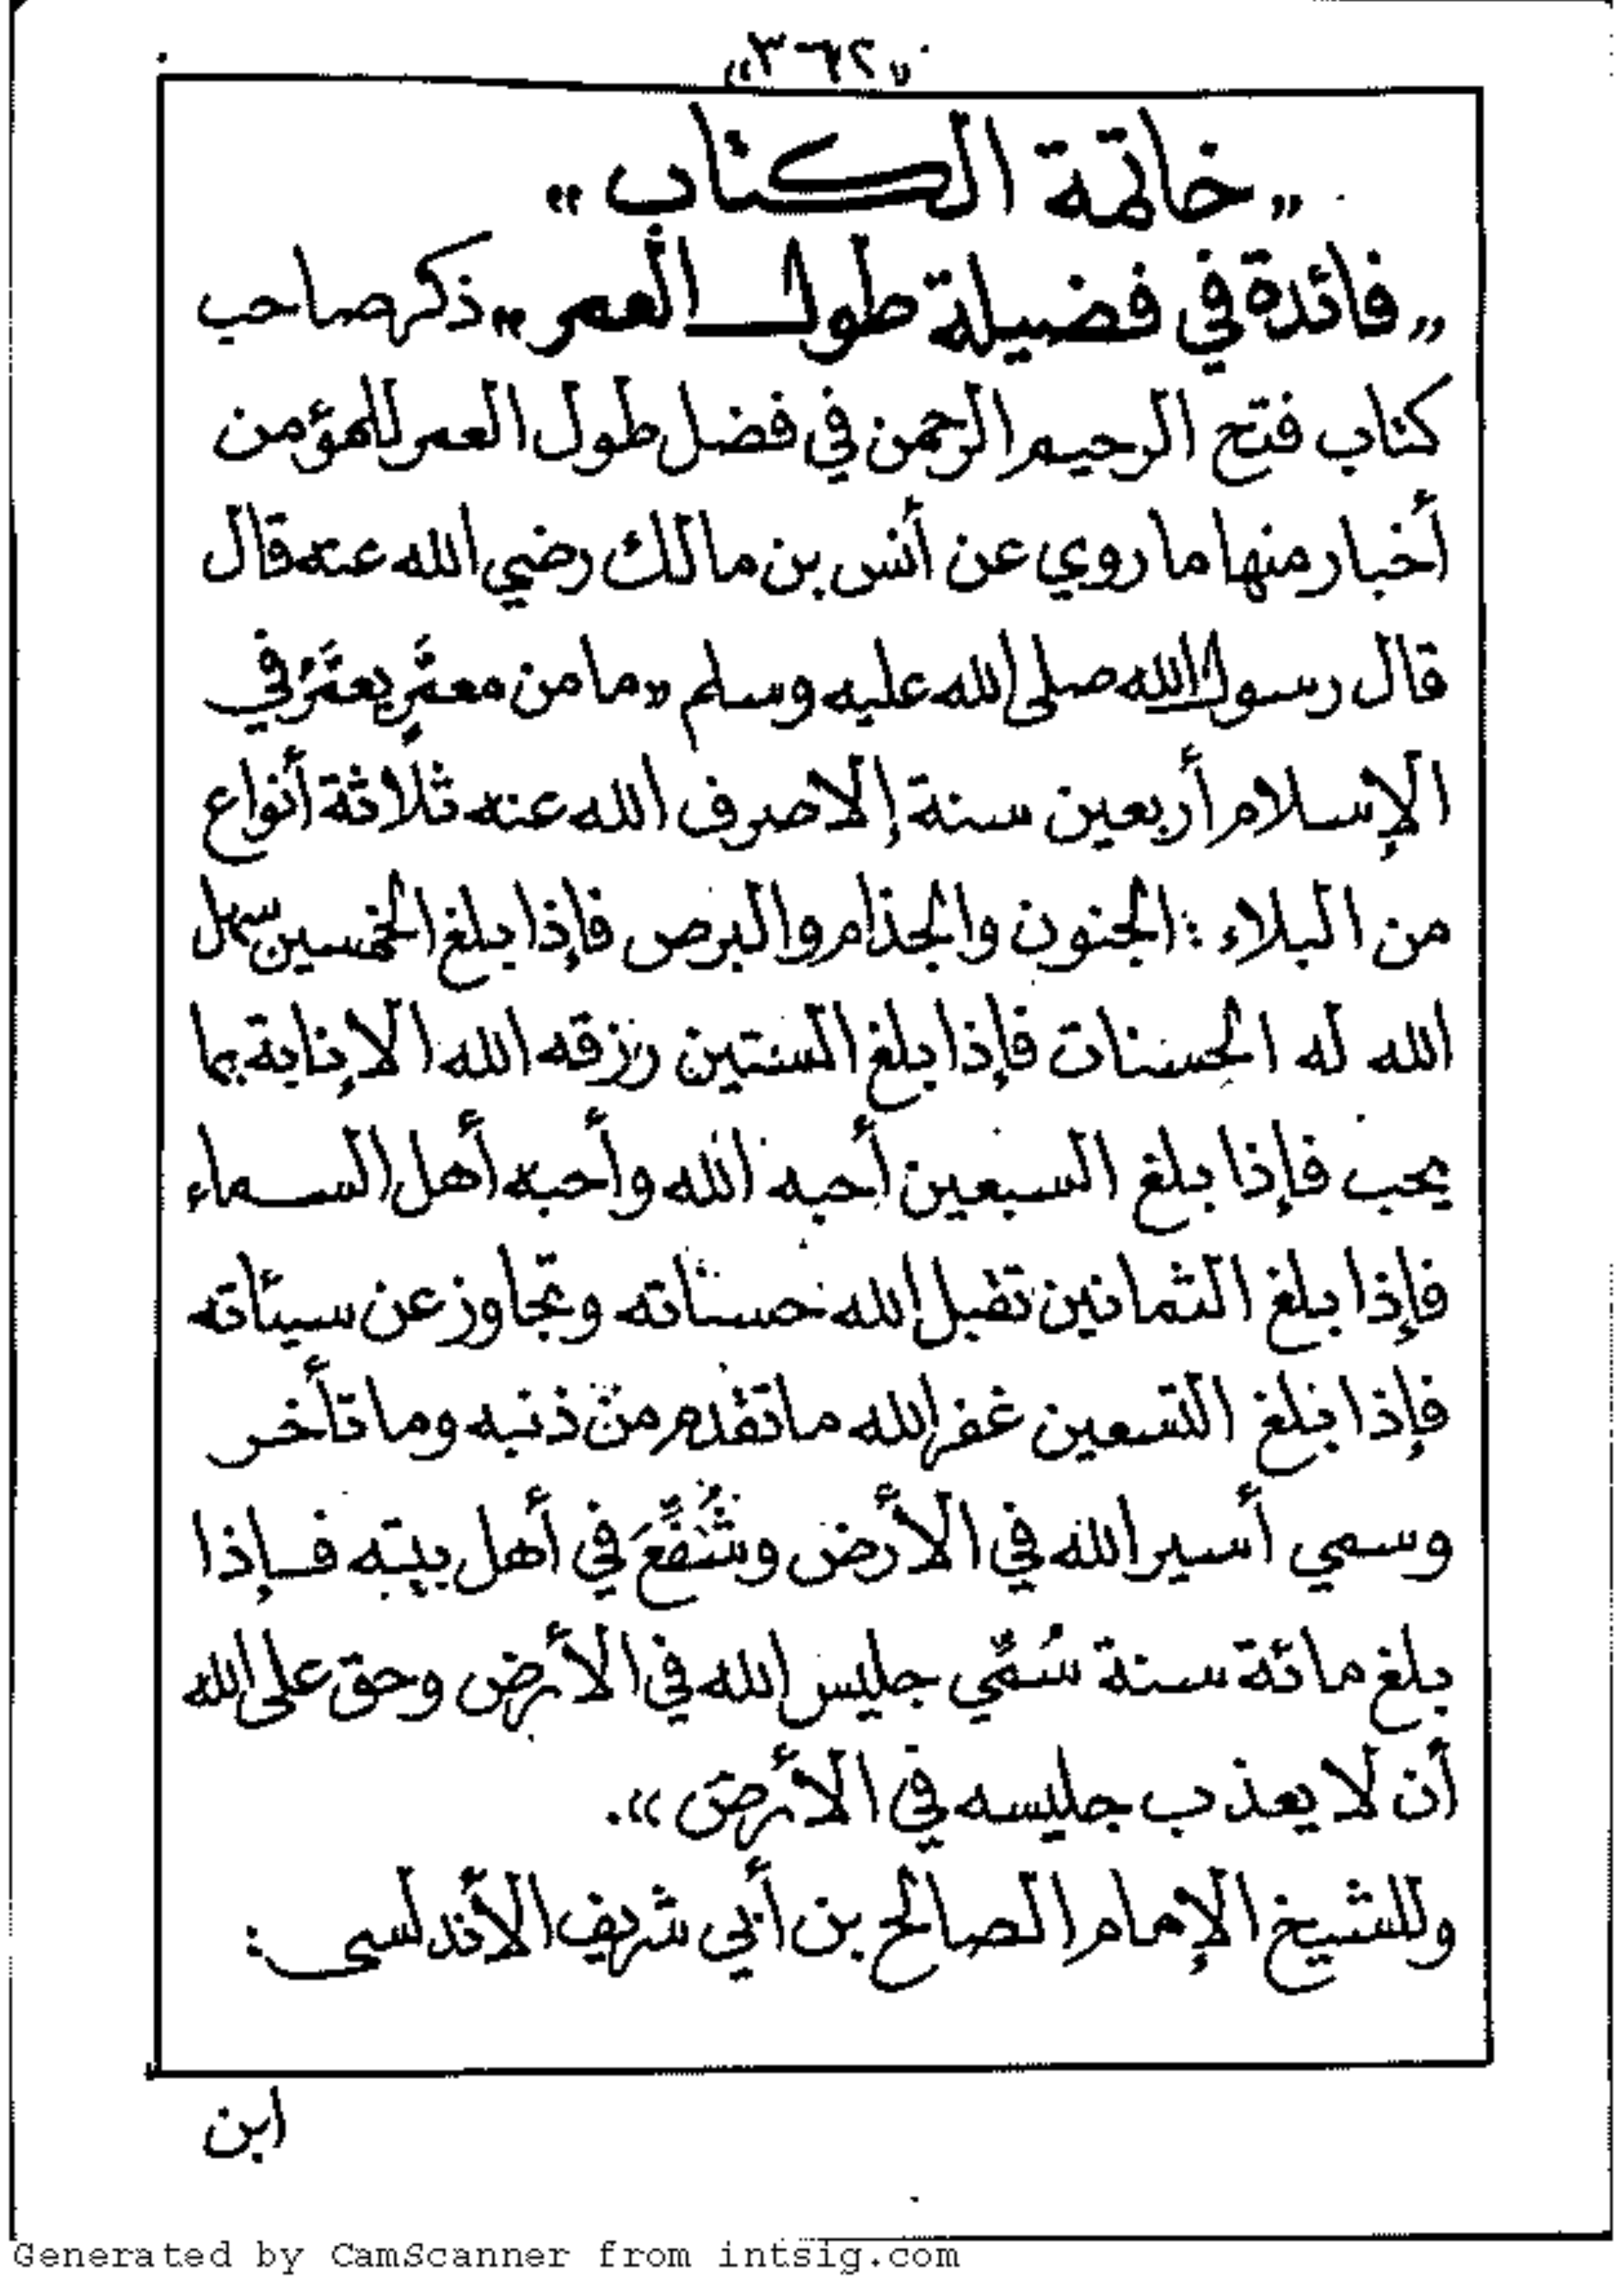 «٣٦٢»
«خاتمة الكتاب»
«فائدة في فضيلة طول العمر» ذكر صاحب
كتاب فتح الرحيم الرحمن في فضل طول العمر للمؤمن
أخبار منها ما روي عن أنس بن مالك رضي الله عنه قال
قال رسول الله صلى الله عليه وسلم «ما من معمَّرٍ يعمَّرُ في
الإسلام أربعين سنة إلا صرف الله عنه ثلاثة أنواع
من البلاء : الجنون والجذام والبرص فإذا بلغ الخمسين سهل
الله له الحسنات فإذا بلغ الستين رزقه الله الإنابة بما
يحب فإذا بلغ السبعين أحبه الله وأحبه أهل السماء
فإذا بلغ الثمانين تقبل الله حسناته وتجاوز عن سيئاته
فإذا بلغ التسعين غفر الله ما تقدم من ذنبه وما تأخر
وسمي أسير الله في الأرض وشُفِّعَ في أهل بيته فإذا
بلغ مائة سنة سُمِّي جليس الله في الأرض وحق على الله
أن لا يعذب جليسه في الأرض».
وللشيخ الإمام الصالح بن أبي شريف الأندلسي :
ابن
Generated by CamScanner from intsig.com